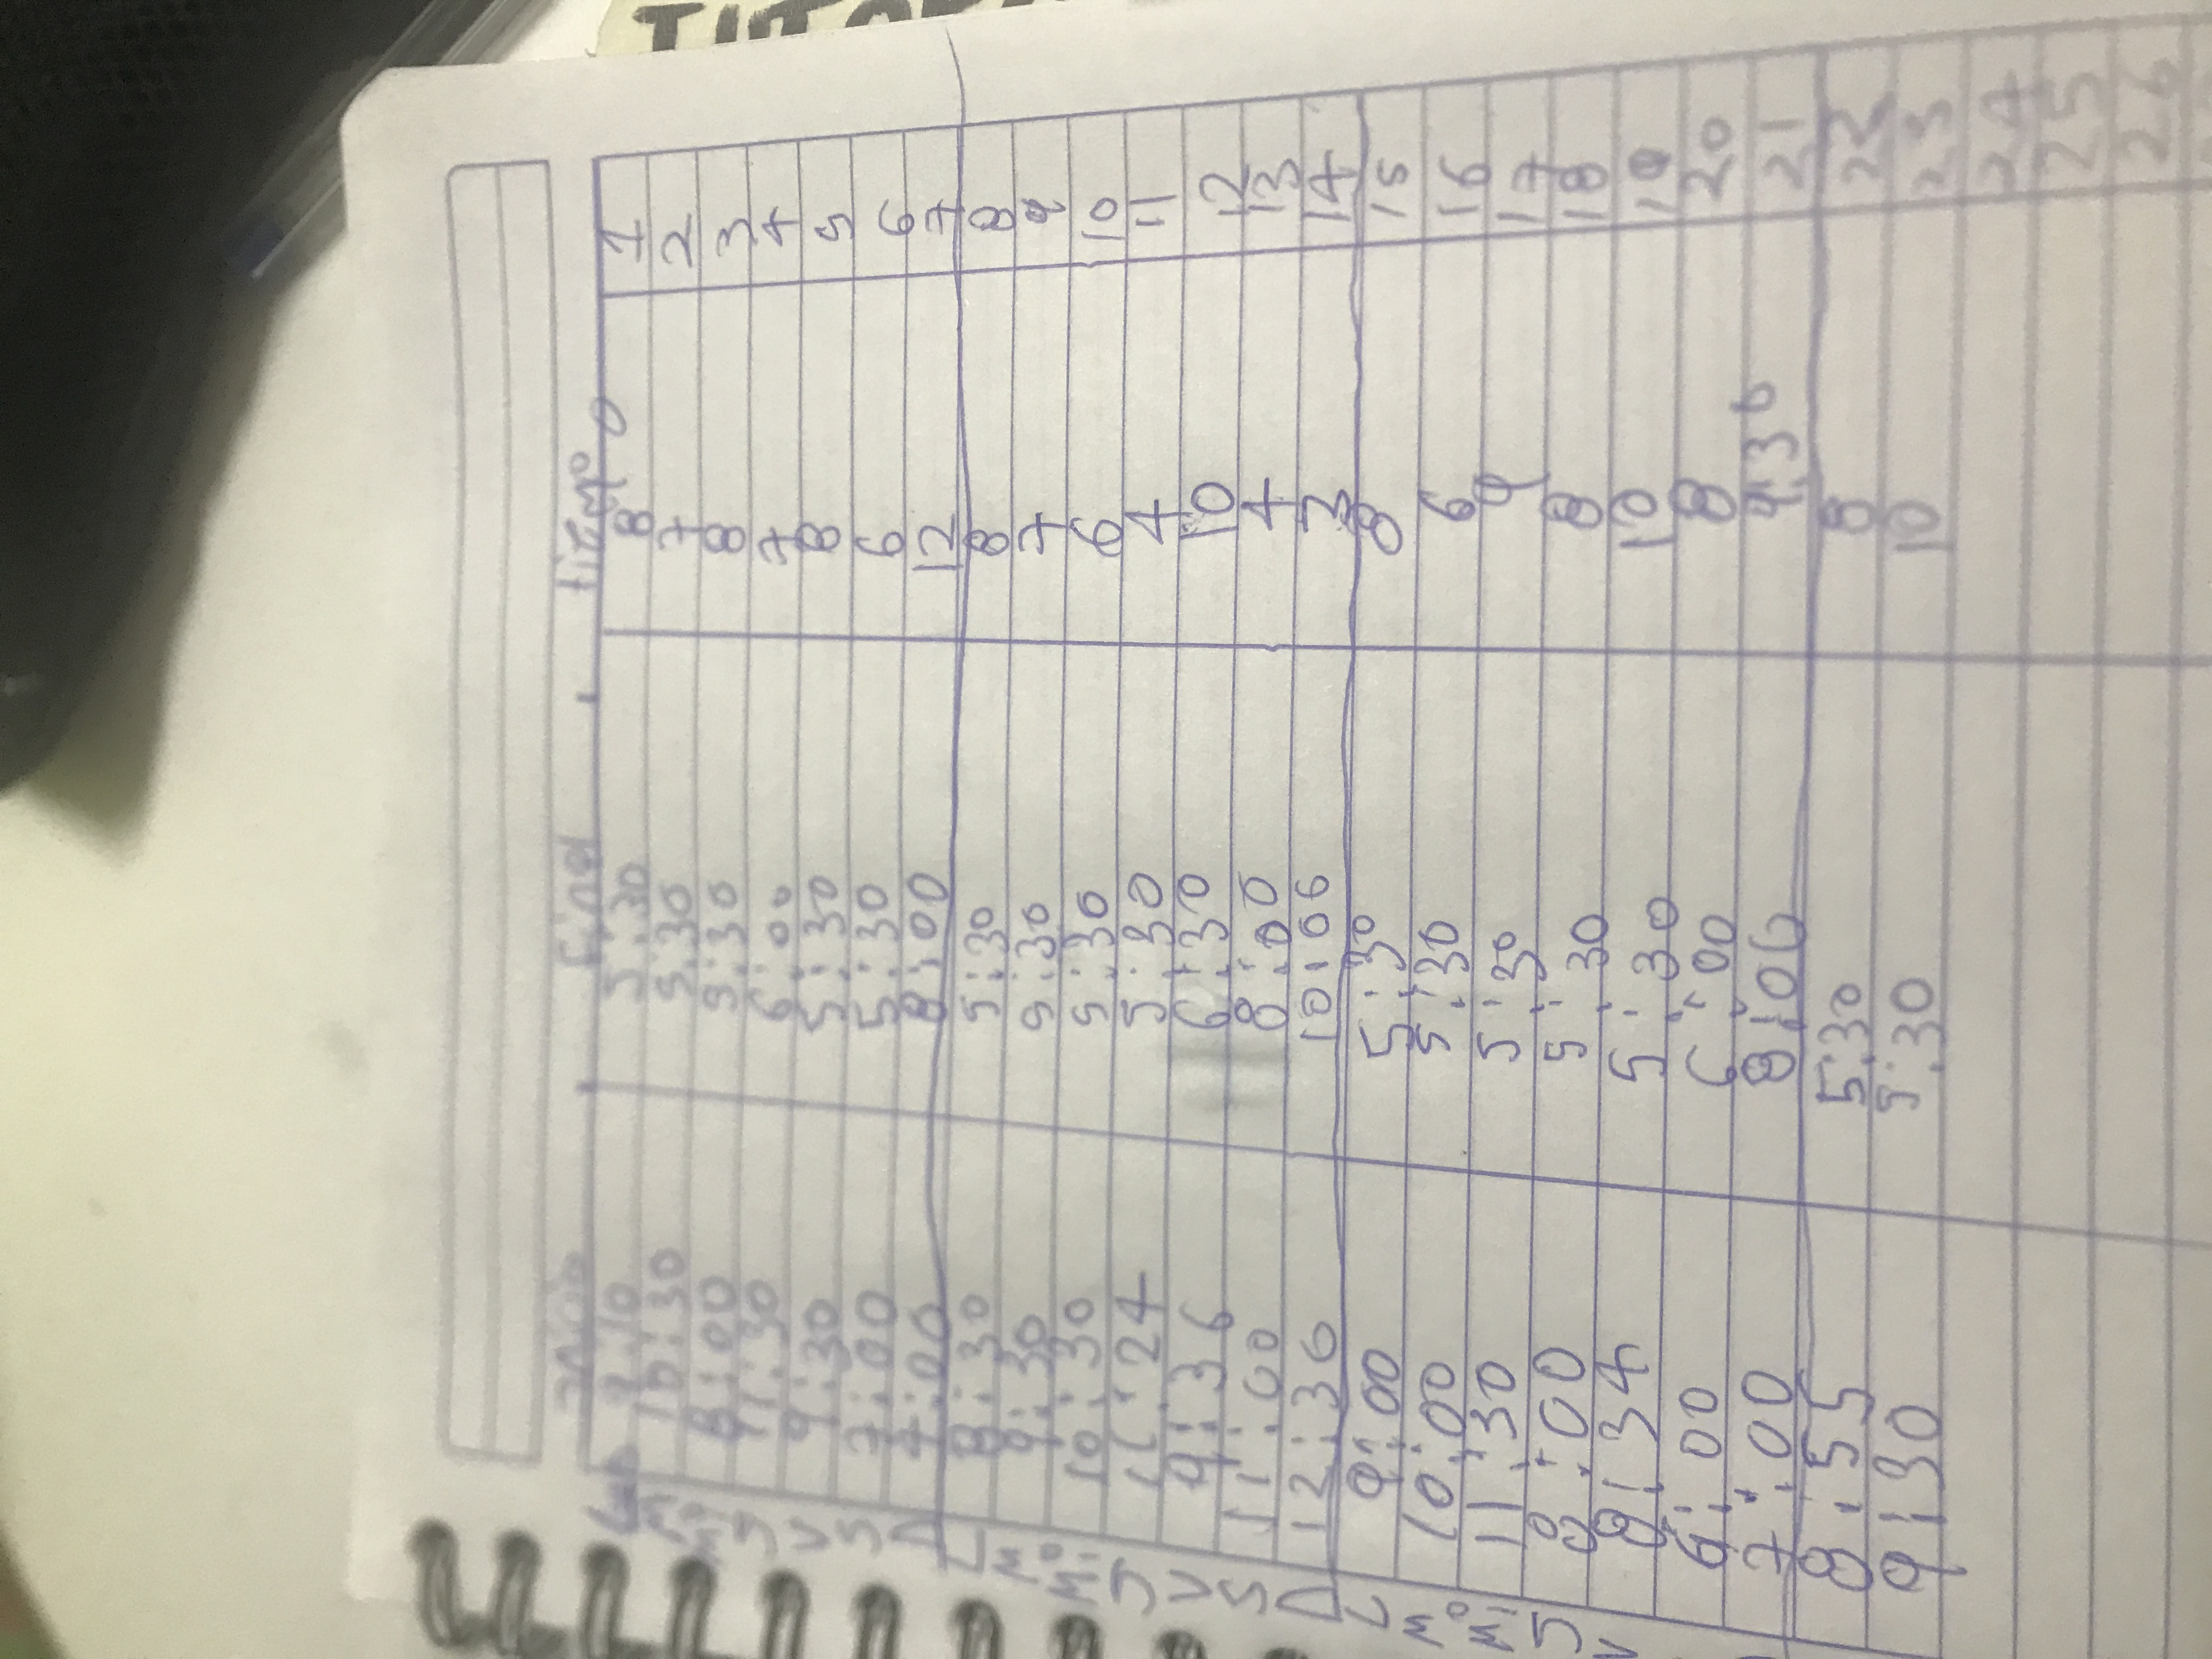 Final tiempo
5:30 8 1
M 10:30 5:30 7 2
Mi 8:00 5:30 8 3
J 9:30 6:00 7 4
V 9:30 5:30 8 5
S 7:00 5:30 6 6
D 7:00 8:00 12 7
L 8:30 5:30 8 8
Mº 9:30 5:30 7 9
Mi 10:30 5:30 6 10
J 11:24 5:30 4 11
V 9:36 6:30 10 12
S 11:00 8:00 7 13
D 12:36 10:06 3 14
L 9:00 5:30 8 15
Mº 10:00 5:30 6 16
Mi 11:30 5:30 9 17
J 8:00 5:30 8 18
V 8:34 5:30 10 19
6:00 6:00 8 20
7:00 8:06 9:36 21
8:55 5:30 8 22
9:30 5:30 10 23
24
25
26